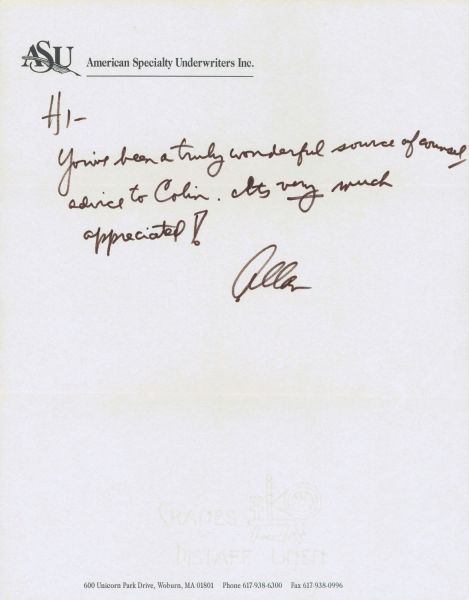 ASU American Specialty Underwriters Inc.
Hi-
You've been a truly wonderful source of counsel
advice to Colin. Its very much
appreciated!
Allan
CRANES
DISTAFF LINEN
600 Unicorn Park Drive, Woburn, MA 01801 Phone 617-938-6300 Fax 617-938-0996